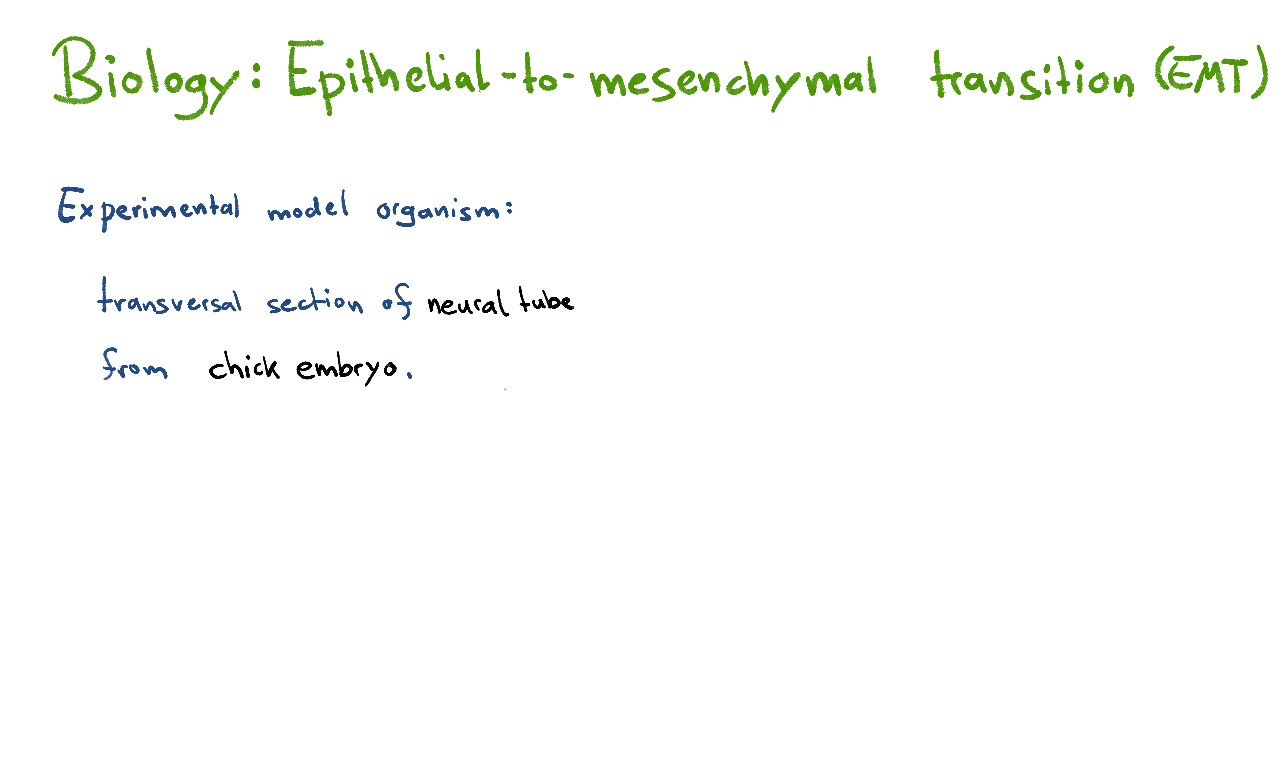 Biology: Epithelial-to-mesenchymal transition (EMT)
Experimental model organism:
transversal section of neural tube
from chick embryo.